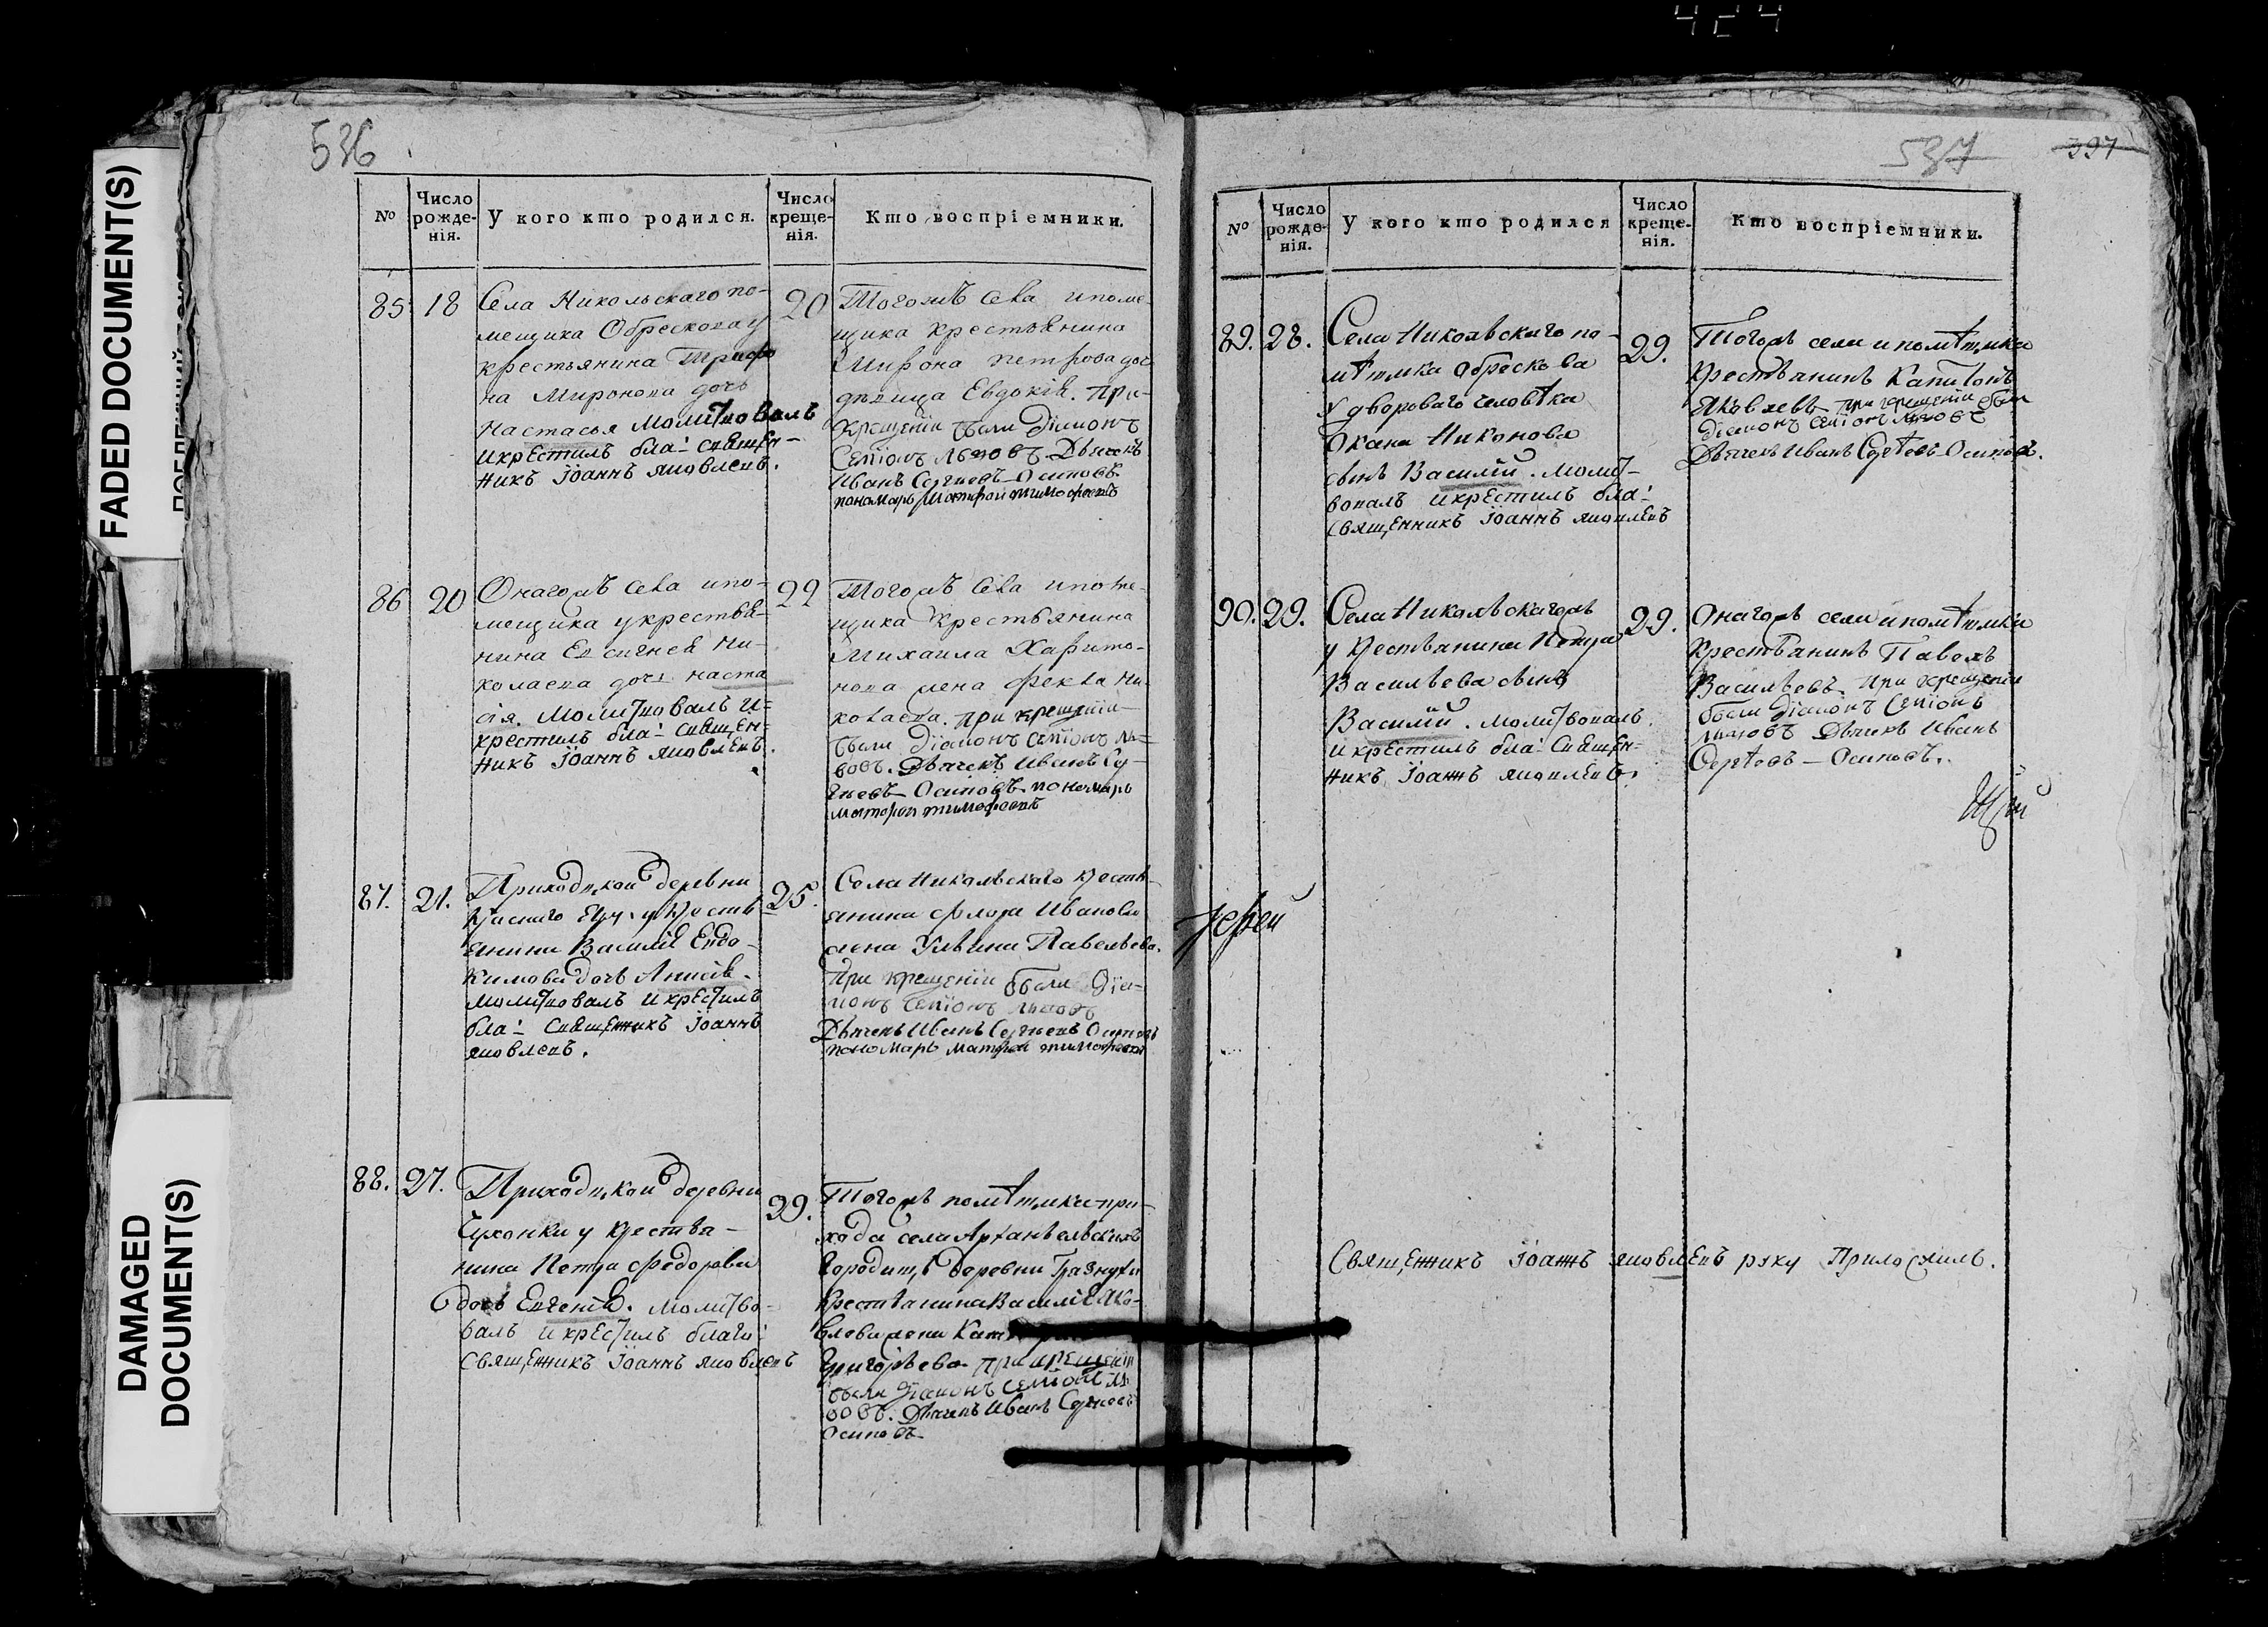 424
536
№
Число рожденія.
У кого кто родился.
Число крещенія.
Кто воспріемники.
85
18
Села Никольскаго по-
мещика Обрескова у
крестьянина Трифо
на Миронова дочь
Настасья молитвовалъ
и крЕстилъ бла: свящЕн-
никъ Іоаннъ яковлевъ.
20
Тогожъ села и поме-
щика крестьянина
Мирона петрова дочь
девица Евдокія. При
крещеніи были діаконъ
Семіонъ Львовъ. Дьячекъ
Иванъ Сергиевъ Осиповъ
пономарь Матфей тимофеевъ
86
20
Онагожъ села и по-
мещика у крестья-
нина Евсигнея Ни-
колаева дочь наста
сія. Молитвовалъ и-
крестилъ бла: свящЕн-
никъ Іоаннъ яковлЕвъ.
22
Тогожъ села и поме-
щика крестьянина
Михаила Харито-
нова жена фекла Ни-
колаева. при крещеніи
были діаконъ Семіонъ Ль-
вовъ. Дьячекъ Иванъ Сер-
гиевъ Осиповъ пономарь
матфеи тимофеевъ
87.
21.
Приходцкой деревни
у крестья-
янина Василія Евдо-
кимова дочь Анисія.
молитвовалъ и крЕстилъ
бла: свящЕнникъ Іоаннъ
яковлевъ.
25.
Села Никольскаго крестья-
янина флора Иванова
жена Ульяна Павельева.
При крещеніи были діа-
конъ Семіонъ львовъ
Дьячекъ Иванъ Сергиевъ Осиповъ
пономарь матфеи тимофеевъ
88.
27.
Приходцкой деревни
у крестья-
нина Петра Федорова
дочь Евгенія. молитво-
валъ и крЕстилъ благо:
СвящЕнникъ Іоаннъ яковлевъ
29.
Тогожъ помѣщика при-
хода села Архангельскихъ
Городищъ деревни Грязнухи
крестьянина Василія Яко-
влева жена
Григорьева. при крещеніи
были діаконъ Семіонъ Ль
вовъ. Дьячекъ Иванъ Сергиевъ
Осиповъ
537
397
№
Число рожденія.
У кого кто родился
Число крещенія.
Кто воспріемники.
89.
28.
Села Никольскаго по-
мѣщика Обрескова
у двороваго человѣка
Никонова
сынъ Василій. Молит-
вовалъ и крЕстилъ бла:
СвящЕнникъ Іоаннъ яковлЕвъ
29.
Тогожъ села и помѣщика
крестьянинъ Капитонъ
Яковлевъ при крещеніи были
діаконъ Семіонъ Львовъ
Дьячекъ Иванъ Сергѣевъ Осиповъ.
90.
29.
Села Никольскагожъ
у крестьянина Петра
Васильева сынъ
Василій. молитвовалъ
и крЕстилъ бла: свящЕн-
никъ Іоаннъ яковлЕвъ.
29.
Онагожъ села и помѣщика
крестьянинъ Павелъ
Васильевъ. При крещеніи
были діаконъ Семіонъ
Львовъ Дьячекъ Иванъ
Сергѣевъ Осиповъ.
Іерей
СвящЕнникъ Іоаннъ яковлЕвъ руку Приложилъ.
FADED DOCUMENT(S)
DAMAGED
DOCUMENT(S)